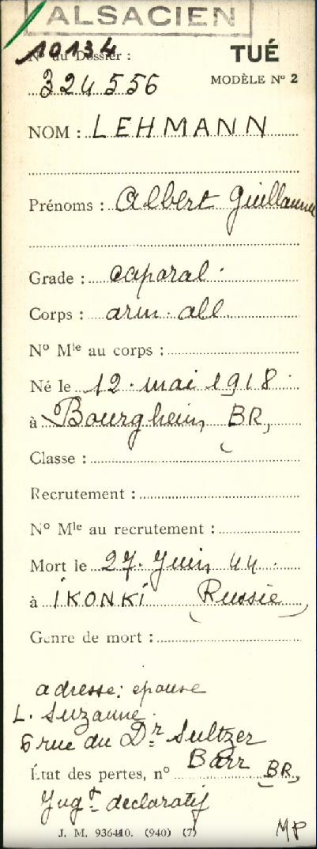 ALSACIEN
10134
N° du Dossier :
TUÉ
324556
MODÈLE N° 2
NOM : LEHMANN
Prénoms : Albert Guillaume
Grade : caporal
Corps : arm. all.
N° Mle au corps :
Né le 12 mai 1918
à Bourgheim, BR,
Classe :
Recrutement :
N° Mle au recrutement :
Mort le 27. Juin 44
à IKONKI (Russie)
Genre de mort :
adresse: epouse
L. Suzanne
6 rue du Dr Sultzer
Barr BR,
État des pertes, n°
Jugt declaratif
J. M. 936410. (940) (7)
MP